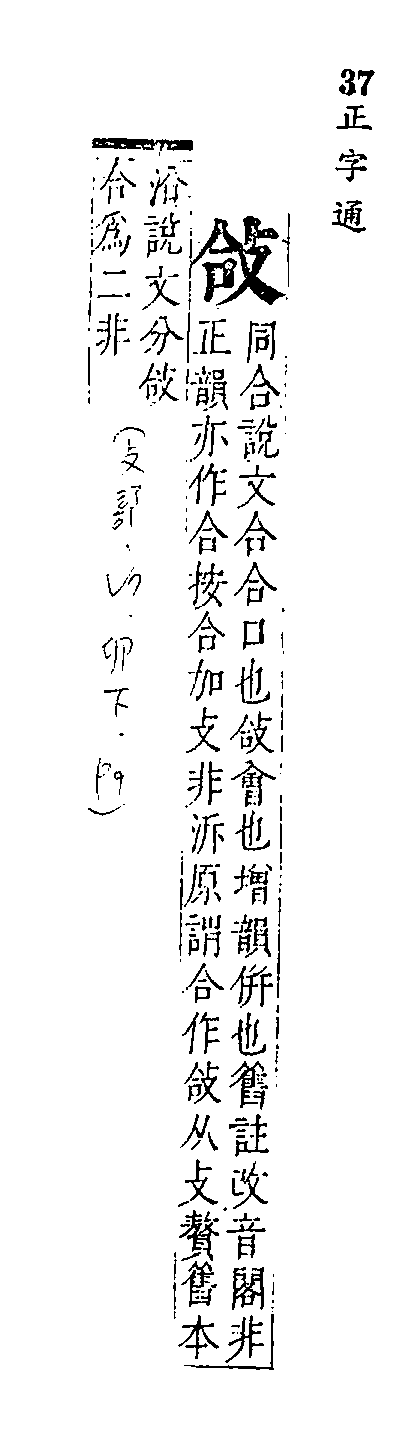 37
正字通
敆
同合說文合合口也敆會也增韻併也舊註改音閣非
正韻亦作合按合加攴非泝原謂合作敆从攴贅舊本
沿說文分敆
合爲二非
(攴部．卯下．P9)